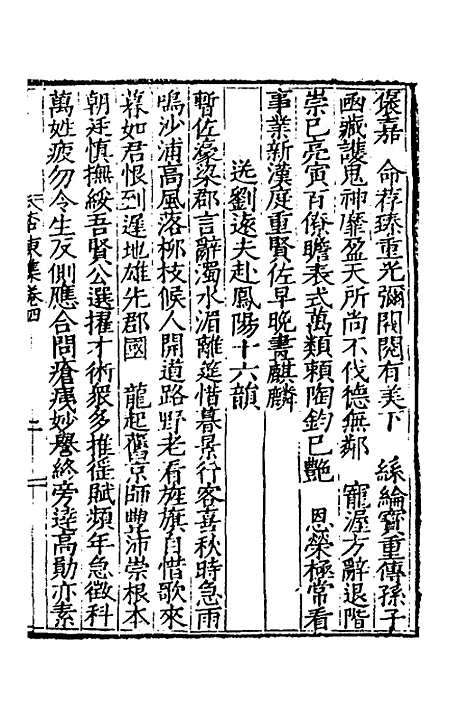 褒嘉　命荐臻重光彌閥閱有美下　絲綸寶重傳孫子
函藏護鬼神靡盈天所尚不伐德無鄰　寵渥方辭退階
崇已亮寅百僚瞻表式萬類頼陶鈞已艷　恩榮極常看
事業新漢庭重賢佐早晚畵麒麟
送劉遠夫赴鳳陽十六韻
暫佐濠梁郡言辭濁水湄離筵惜暮景行客喜秋時急雨
鳴沙浦高風落栁枝候人開道路野老看旌旗自惜歌來
暮如君恨到遲地雄先郡國　龍起舊京師豐沛崇根本
朝廷慎撫綏吾賢公選擢才術衆多推徭賦頻年急徵科
萬姓疲勿令生反側應合問瘡痍妙譽終旁逹高勛亦素
東集卷四
二